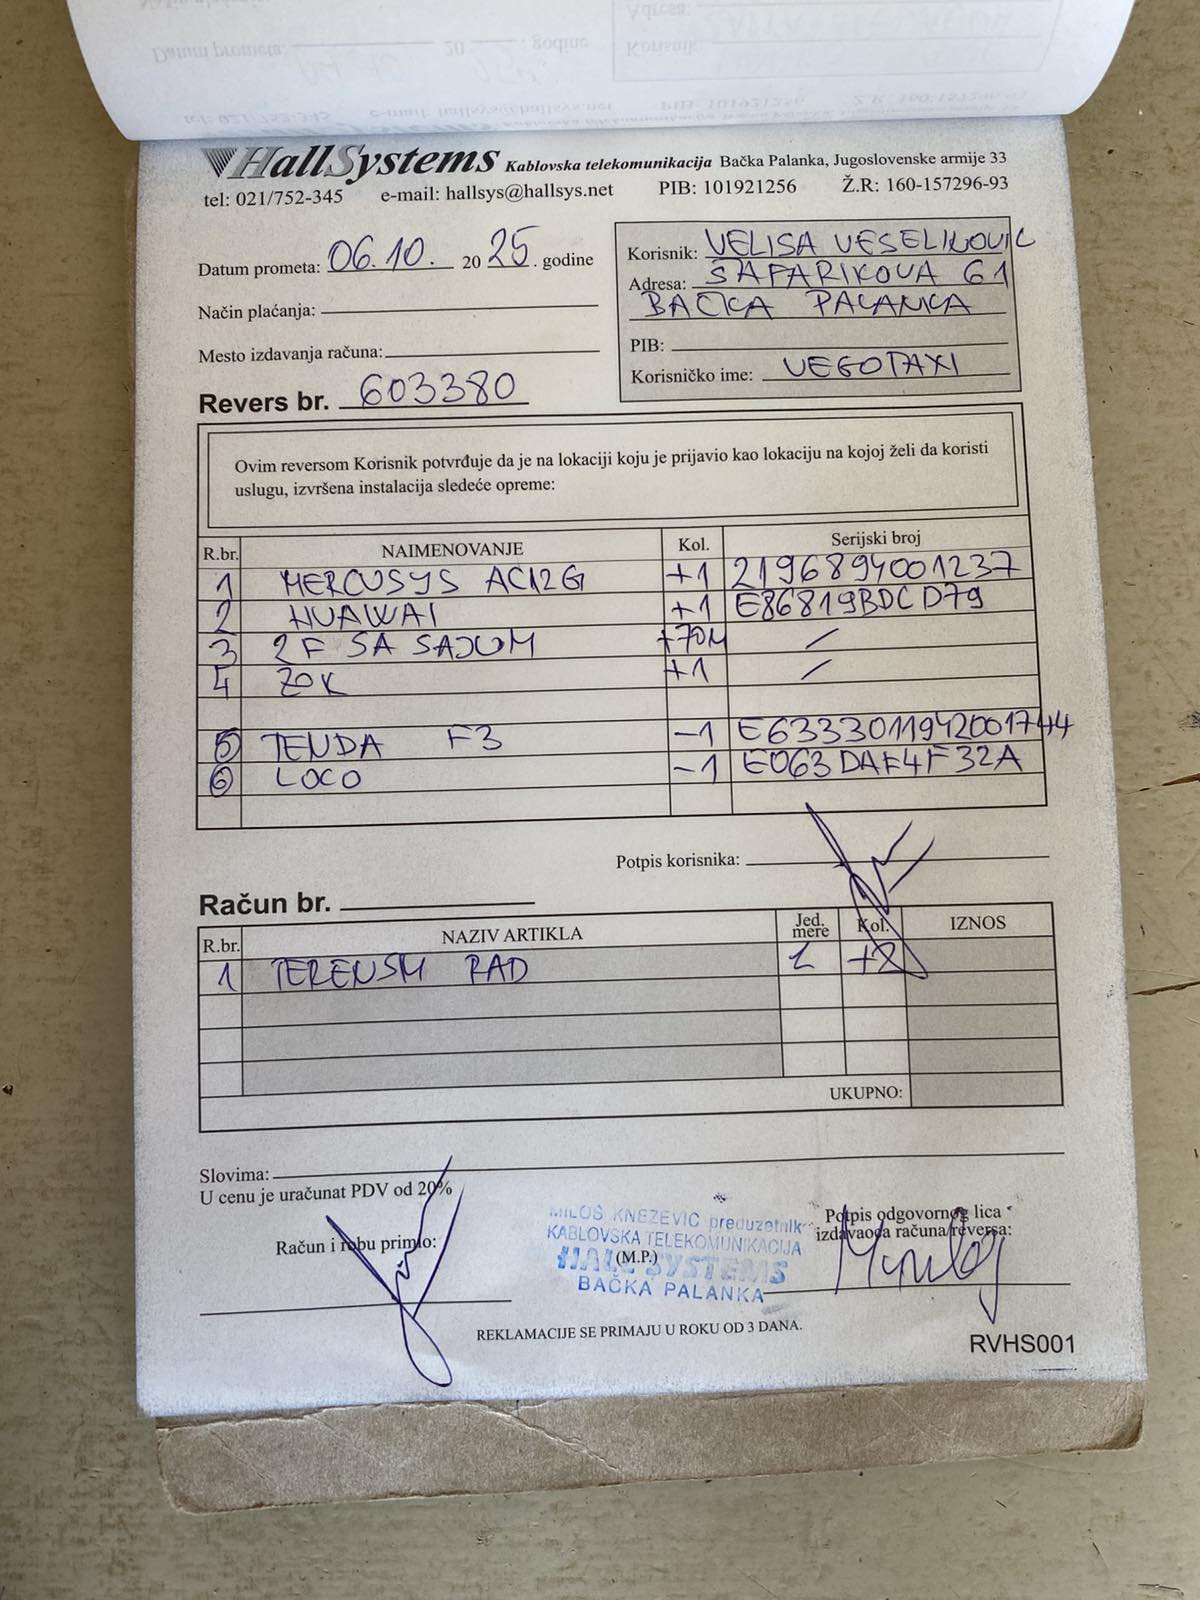 HallSystems Kablovska telekomunikacija Bačka Palanka, Jugoslovenske armije 33
tel: 021/752-345 e-mail: hallsys@hallsys.net PIB: 101921256 Ž.R: 160-157296-93
Datum prometa: 06.10. 20 25. godine
Način plaćanja:
Mesto izdavanja računa:
Revers br. 603380
Korisnik: VELISA VESELINOVIC
Adresa: SAFARIKOVA 61
BAČKA PALANKA
PIB:
Korisničko ime: VEGOTAXI
Ovim reversom Korisnik potvrđuje da je na lokaciji koju je prijavio kao lokaciju na kojoj želi da koristi
uslugu, izvršena instalacija sledeće opreme:
R.br. NAIMENOVANJE Kol. Serijski broj
1 MERCUSYS AC12G +1 2196894001237
2 HUAWAI +1 E86819BDCD79
3 2F SA SAJLOM +70M /
4 ZOK +1 /
5 TENDA F3 -1 E6333011942001744
6 LOCO -1 E063DAF4F32A
Potpis korisnika:
Račun br.
R.br. NAZIV ARTIKLA Jed. mere Kol. IZNOS
1 TERENSKI RAD 1 +2
UKUPNO:
Slovima:
U cenu je uračunat PDV od 20%
Račun i robu primio:
MILOŠ KNEŽEVIĆ preduzetnik
KABLOVSKA TELEKOMUNIKACIJA
(M.P.)
HALL SYSTEMS
BAČKA PALANKA
Potpis odgovornog lica
izdavaoca računa/reversa:
REKLAMACIJE SE PRIMAJU U ROKU OD 3 DANA.
RVHS001